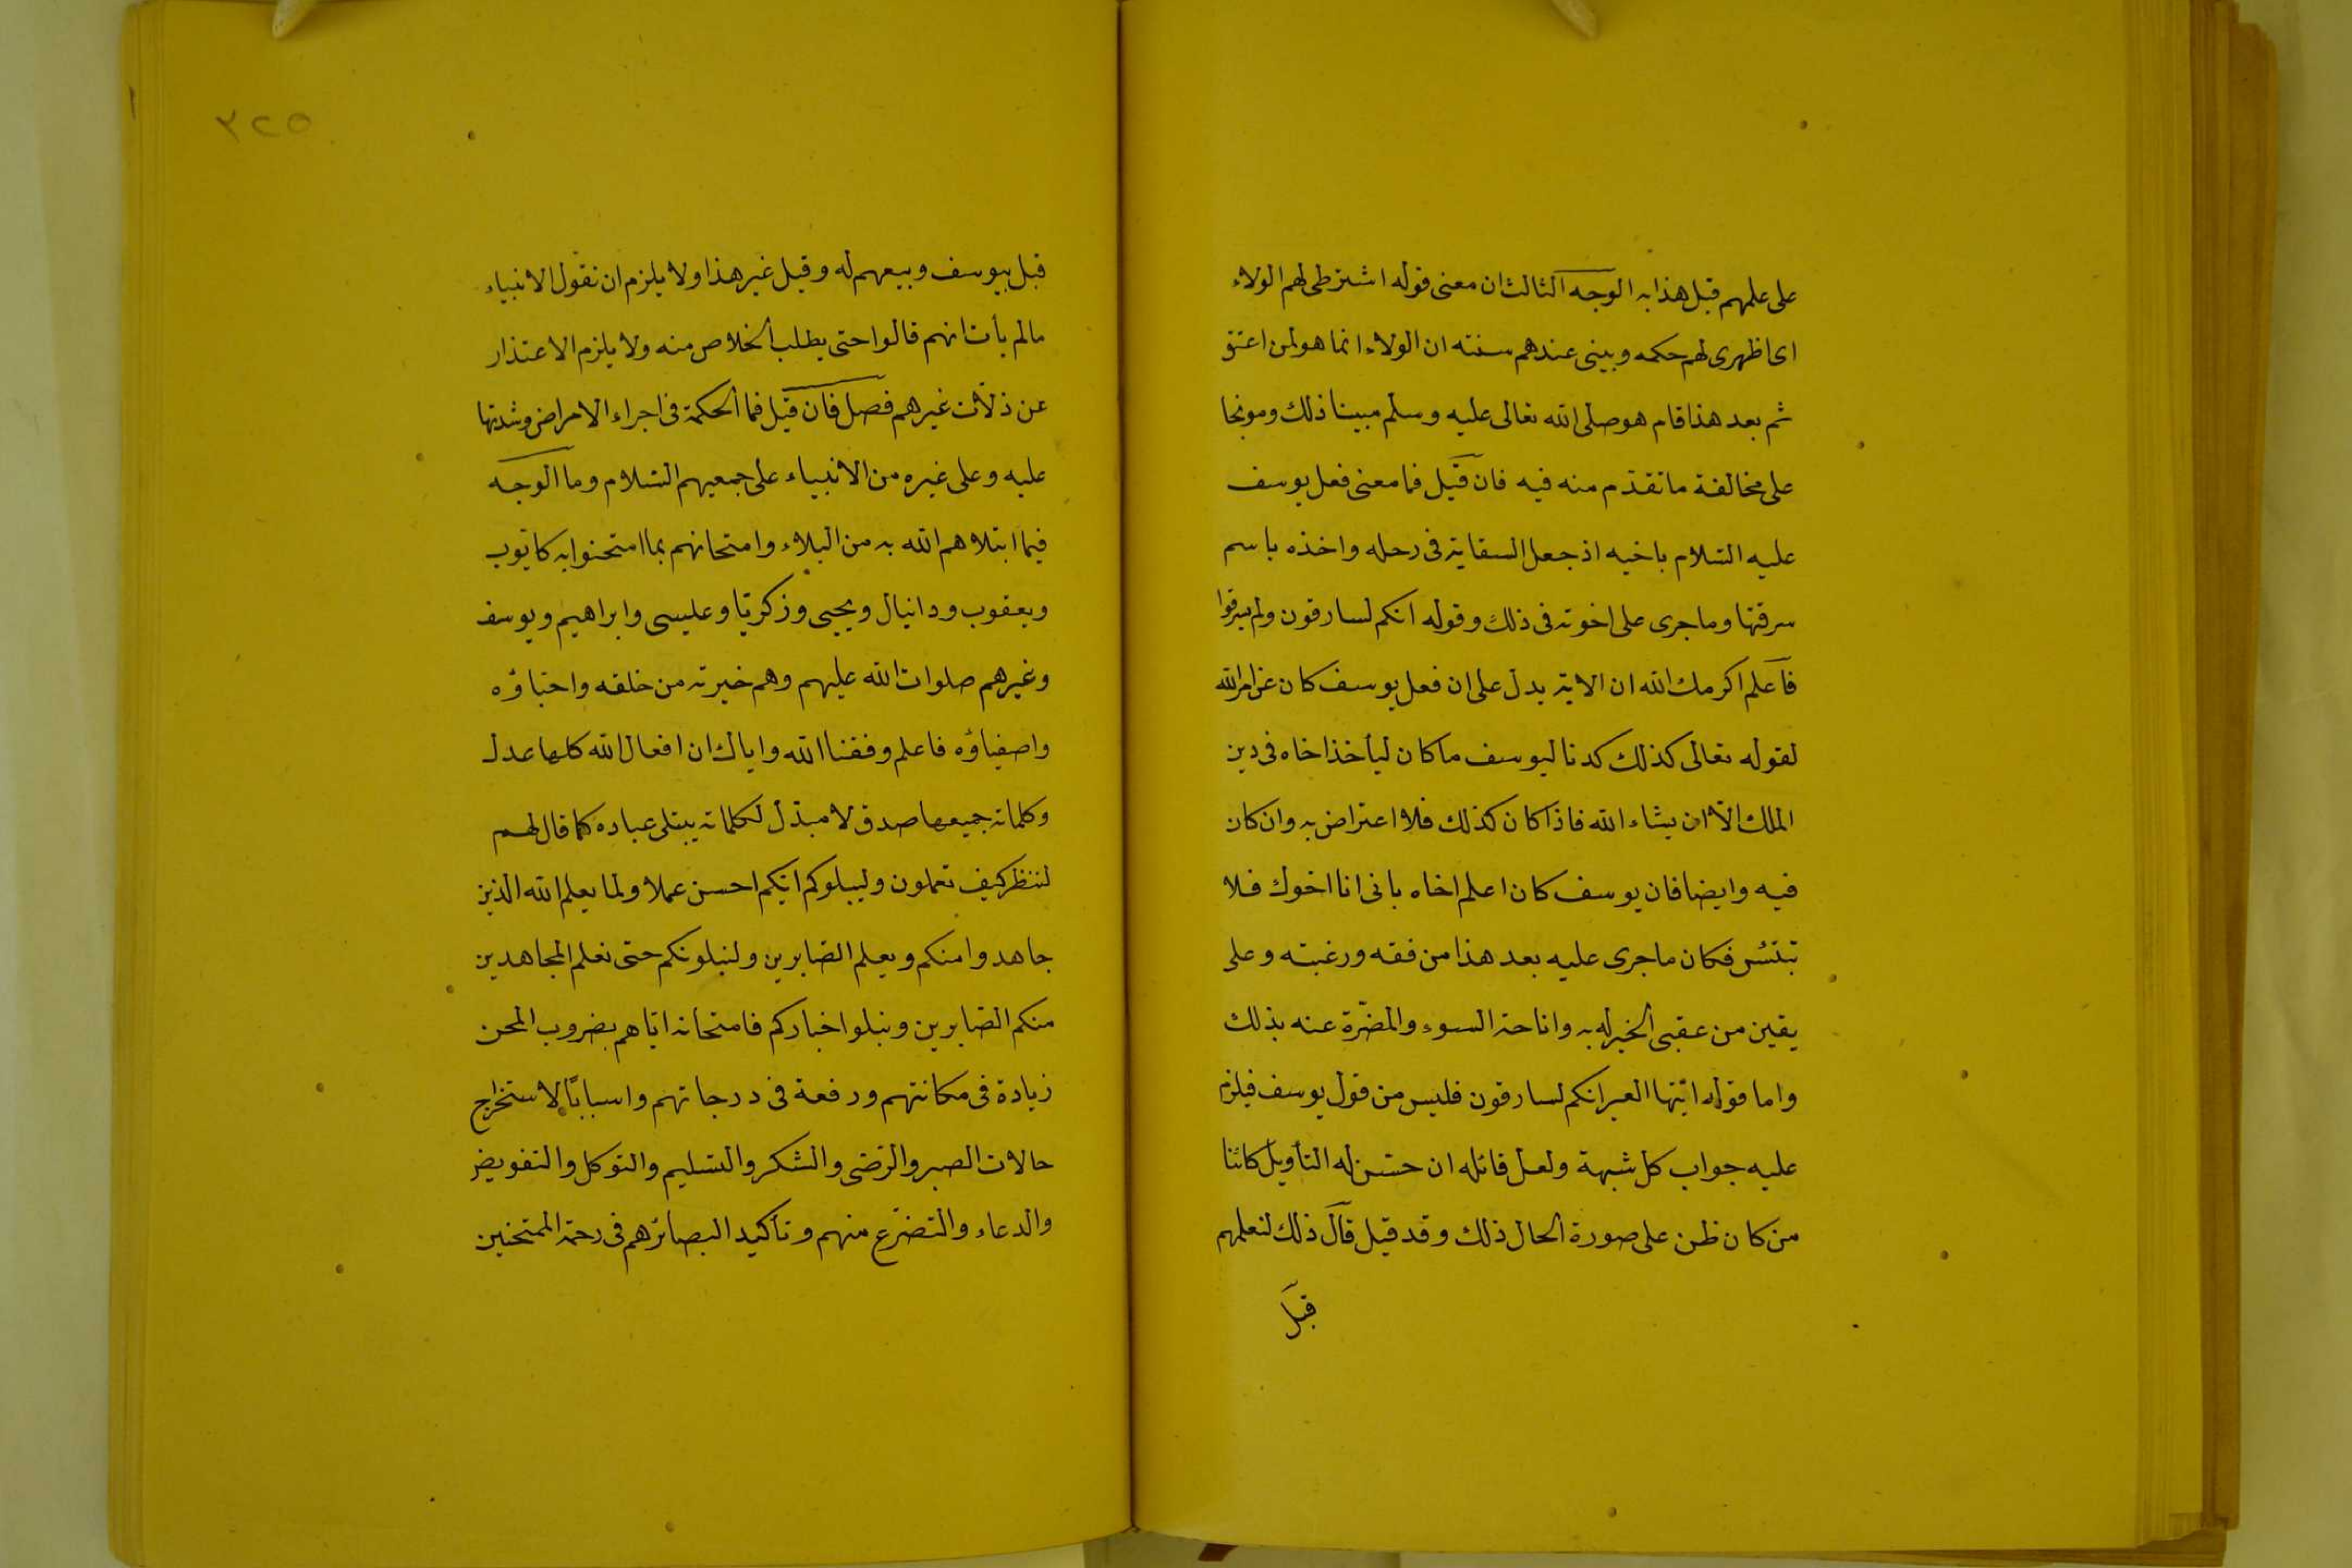 على علمهم قبل هذا به الوجه الثالث ان معنى قوله اشترطى لهم الولاء
اى اظهرى لهم حكمه وبينى عندهم سنته ان الولاء انما هو لمن اعتق
ثم بعد هذا قام هو صلى الله تعالى عليه وسلم مبينا ذلك وموبخا
على مخالفة ما تقدم منه فيه فان قيل فما معنى فعل يوسف
عليه السلام باخيه اذ جعل السقاية فى رحله واخذه باسم
سرقتها وما جرى على اخوته فى ذلك وقوله انكم لسارقون ولم يسرقوا
فاعلم اكرمك الله ان الاية يدل على ان فعل يوسف كان عن امر الله
لقوله تعالى كذلك كدنا ليوسف ما كان ليأخذ اخاه فى دين
الملك الا ان يشاء الله فاذا كان كذلك فلا اعتراض به وان كان
فيه وايضا فان يوسف كان اعلم اخاه بانى انا اخوك فلا
تبتئس فكان ما جرى عليه بعد هذا من فقه ورغبته وعلى
يقين من عقبى الخير له به واناحة السوء والمضرة عنه بذلك
واما قوله ايتها العير انكم لسارقون فليس من قول يوسف فيلزم
عليه جواب كل شبهة ولعل قائله ان حسن له التأويل كائنا
من كان ظن على صورة الحال ذلك وقد قيل قال ذلك لفعلهم
قبل
٣٢٥
قبل بيوسف وبيعهم له وقيل غير هذا ولا يلزم ان نقول الانبياء
مالم يأت انهم قالوا حتى يطلب الخلاص منه ولا يلزم الاعتذار
عن ذلات غيرهم فصل فان قيل فما الحكمة فى اجراء الامراض وشدتها
عليه وعلى غيره من الانبياء على جمعيهم السلام وما الوجه
فيما ابتلاهم الله به من البلاء وامتحانهم بما امتحنوا به كايوب
ويعقوب ودانيال ويحيى وزكريا وعليسى وابراهيم ويوسف
وغيرهم صلوات الله عليهم وهم خيرته من خلقه واحباؤه
واصفياؤه فاعلم وفقنا الله واياك ان افعال الله كلها عدل
وكلماته جميعها صدق لا مبدل لكلماته يبتلى عباده كما قال لهم
لننظر كيف تعملون وليبلوكم ايكم احسن عملا ولما يعلم الله الذين
جاهدوا منكم ويعلم الصابرين ولنبلونكم حتى نعلم المجاهدين
منكم الصابرين ونبلوا اخباركم فامتحانه اياهم بضروب المحن
زيادة فى مكانتهم ورفعة فى درجاتهم واسبابا لاستخراج
حالات الصبر والرضى والشكر والتسليم والتوكل والتفويض
والدعاء والتضرع منهم وتأكيد البصائرهم فى رحمة الممتحنين